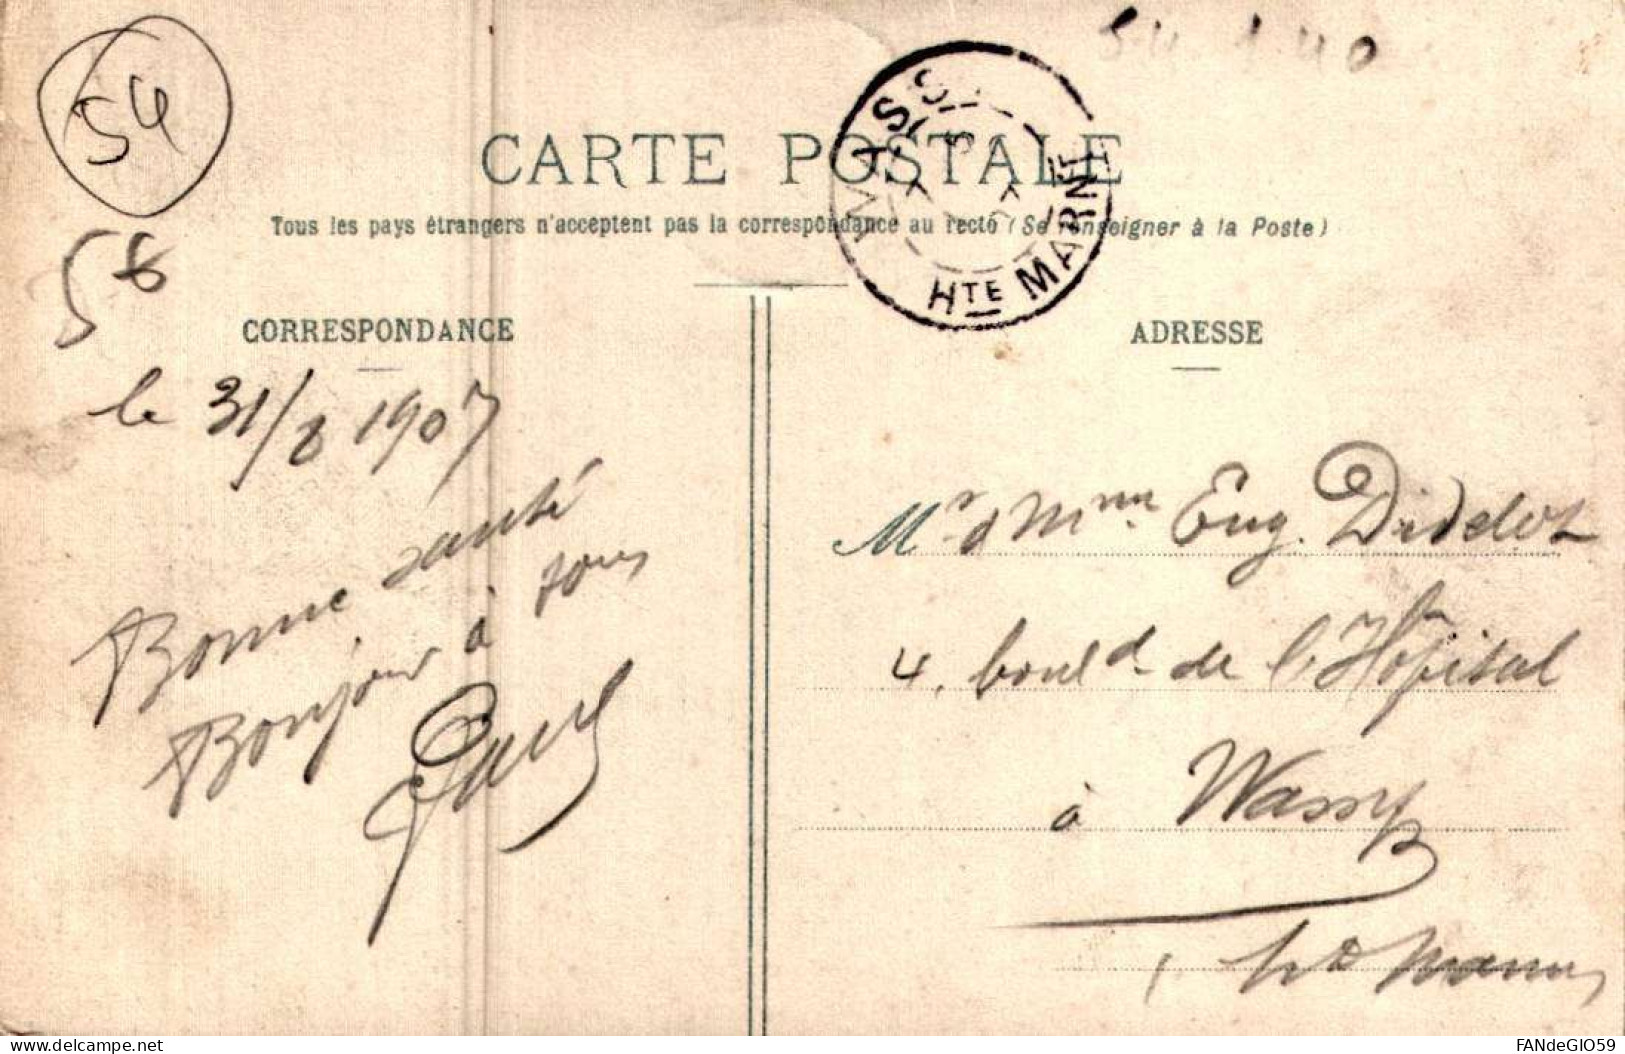 54
54 140
WASSY
HTE MARNE
CARTE POSTALE
Tous les pays étrangers n'acceptent pas la correspondance au recto (Se renseigner à la Poste)
56
CORRESPONDANCE
le 31/8 1907
Bonne santé
Bonjour à tous
Paul
ADRESSE
Mr & Mme Eug. Didelot
4, boul.d de l'Hôpital
à Wassy
(Hte Marne)
delcampe.net
FANdeGIO59